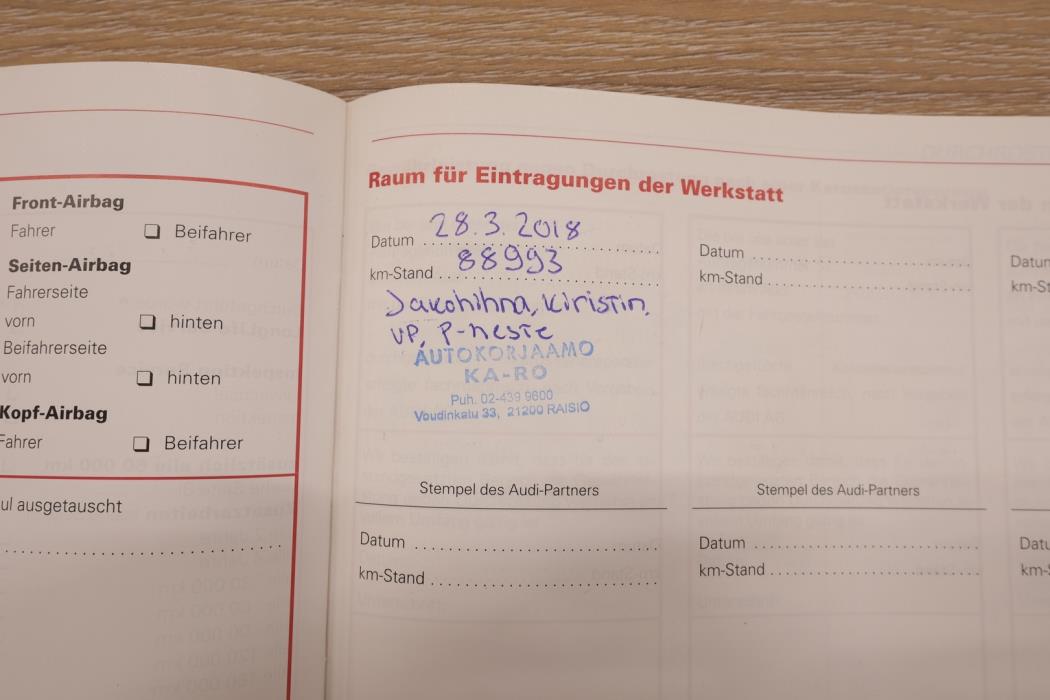 Front-Airbag
Fahrer Beifahrer
Seiten-Airbag
Fahrerseite
vorn hinten
Beifahrerseite
vorn hinten
Kopf-Airbag
Fahrer Beifahrer
ul ausgetauscht
Raum für Eintragungen der Werkstatt
Datum 28.3.2018
km-Stand 88993
Jakohihna, kiristin,
VP, P-neste
AUTOKORJAAMO
KA-RO
Puh. 02-439 9600
Voudinkatu 33, 21200 RAISIO
Stempel des Audi-Partners
Datum
km-Stand
Datum
km-Stand
Stempel des Audi-Partners
Datum
km-Stand
Datum
km-S
Datu
km-S